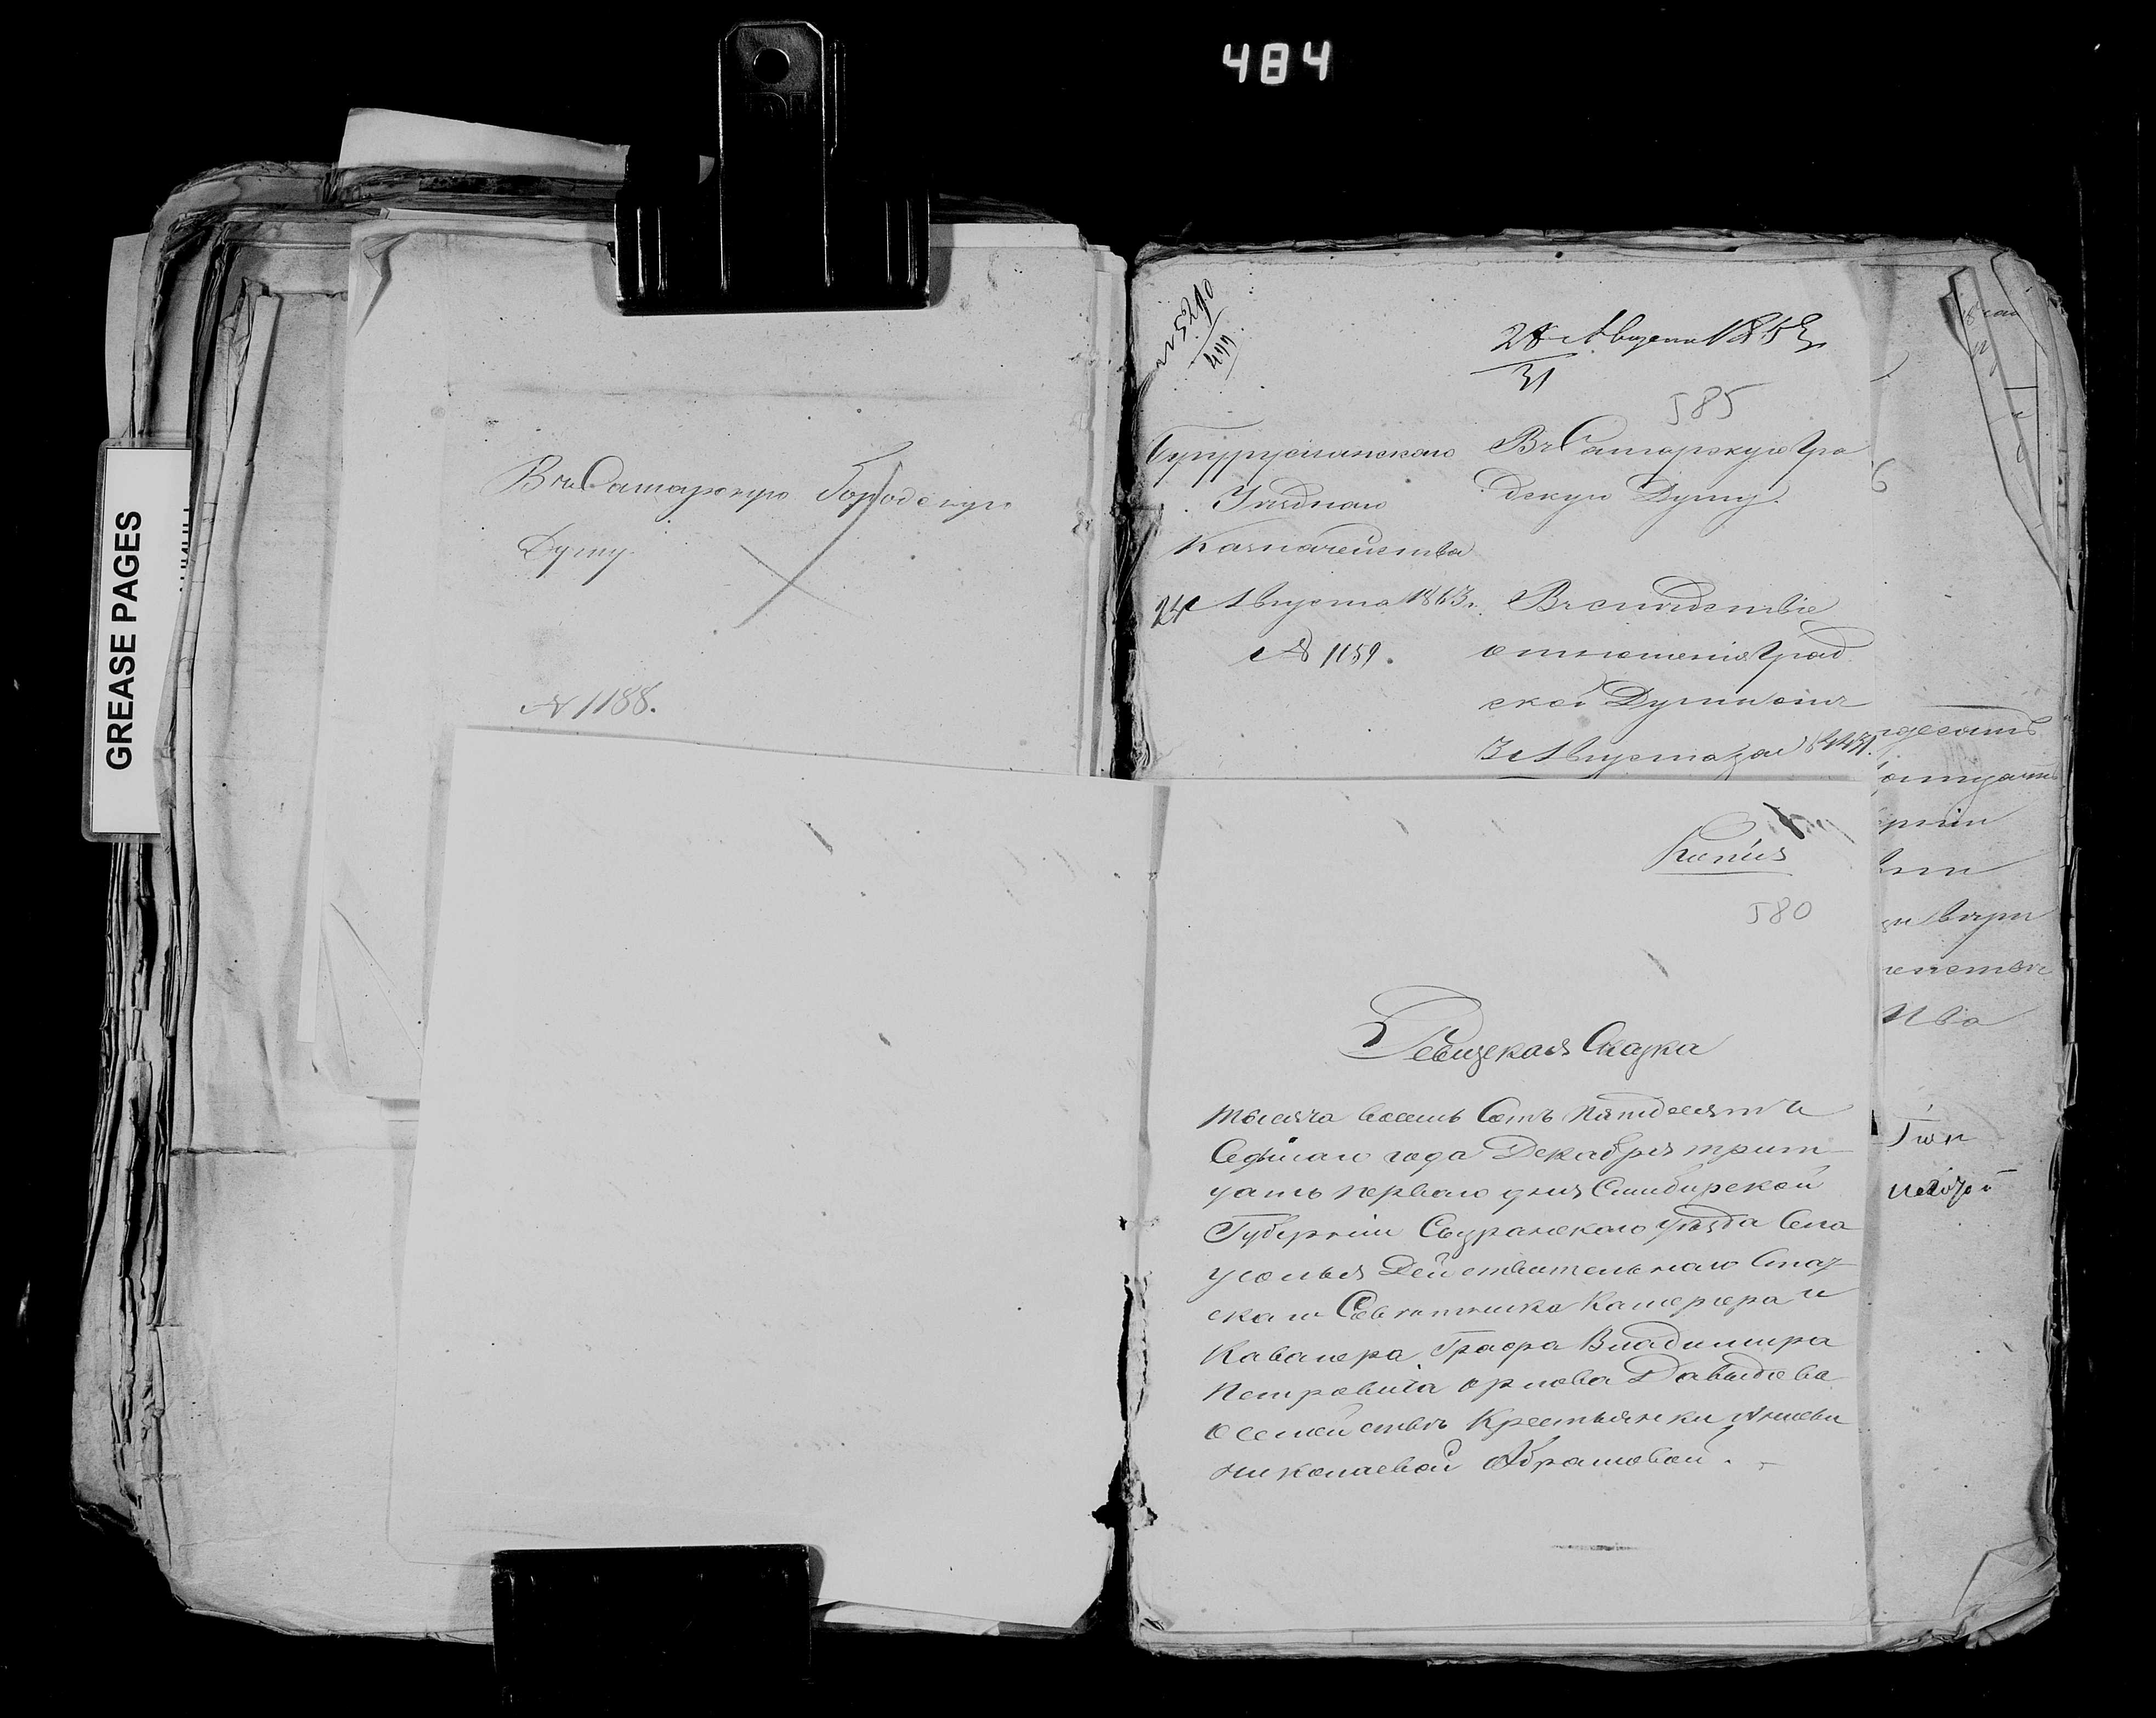 484
GREASE PAGES
Въ Самарскую Городскую
Думу
№ 1188.
585
Бугурусланскаго
Уѣзднаго
Казначейства
24 Августа 1863 г.
№ 1159.
Въ Самарскую Гра
дскую Думу.
Въ слѣдствіе
отношенія Град
ской Думы отъ
3 Августа за №
Копія
580
Ревизская Сказка
Тысяча восемь Сотъ пятдесятъ
Седьмаго года Декабря трит-
цать перваго дня Симбирской
Губерніи Сызранскаго уѣзда Села
усолья Действительнаго Стат
скаго Совѣтника Камергера и
Кавалера Графа Владимира
Петровича орлова Давыдова
о семействѣ Крестьянки
николаевой Абрамовой.